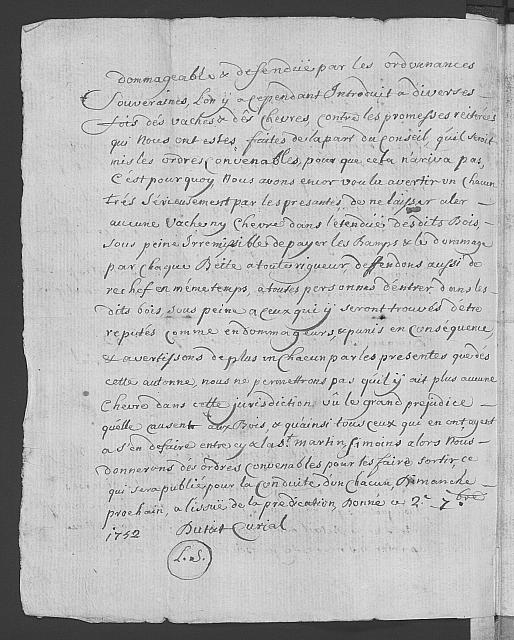 dommageable & defendüe par les ordonnances
Souveraines, L'on ÿ a cependant Introduit a diverses
fois des vaches & des chevres, contre les promesses reiterées
qui Nous ont estes faites de la part du Conseil, quil seroit
mis les ordres Convenables, pour que cela n'ariva pas,
C'est pourquoy Nous avons encor voulu avertir un chacun
trés Sérieusement par les presantes, de ne laisser aler
aucune vache ny Chevre dans l'étendüe desdits Bois,
sous peine irremissible de payer les Bamps & le dommage
par chaque Bête a toute rigueur, deffendons aussi de
rechef en même temps, a toutes personnes d'entrer dans les
dits bois sous peine a ceux qui ÿ seront trouvés d'etre
reputés comme endommageurs, & punis en conséquence,
& avertissons de plus un Chacun par les presentes que dés
cette automne, nous ne permettrons pas qu'il ÿ ait plus aucune
Chevre dans cette jurisdiction vû le grand prejudice
qu'elle causent aux Bois, & qu'ainsi tous ceux qui en ont ayent
a s'en defaire entre cy & la St. Martin, Simoins alors Nous
donnerons des ordres convenables pour les faire sortir, ce
qui sera publié pour la conduite d'un chacun Dimanche
prochain, a lissüe de la predication, Donné ce 2e. 7bre
1752 Curial
L. S.